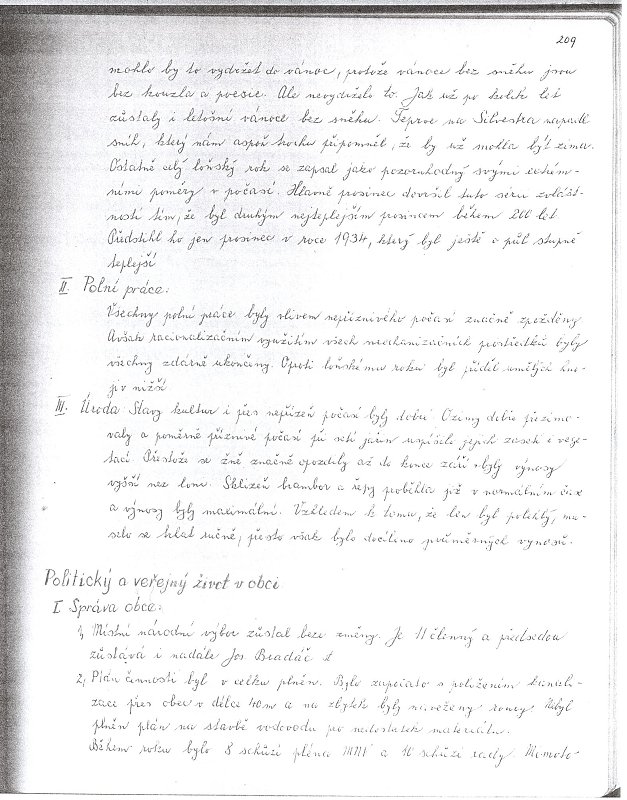 209
mohlo by to vydržet do vánoc, protože vánoce bez sněhu jsou
bez kouzla a poesie. Ale nevydrželo to. Jak už po kolik let
zůstaly i letošní vánoce bez sněhu. Teprve na Silvestra napadl
sníh, který nám aspoň trochu připomněl, že by už mohla být zima.
Ostatně celý loňský rok se zapsal jako pozoruhodný svými extrém-
ními poměry v počasí. Hlavně prosinec dovršil tuto serii zvlášt-
ností tím, že byl druhým nejteplejším prosincem během 200 let
Předstihl ho jen prosinec v roce 1934, který byl ještě o půl stupně
teplejší
II. Polní práce:
Všechny polní práce byly vlivem nepříznivého počasí značně zpožděny
Avšak racionalizačním využitím všech mechanizačních prostředků byly
všechny zdárně ukončeny. Oproti loňskému roku byl příděl umělých hno-
jiv nižší
III. Úroda Stavy kultur i přes nepřízeň počasí byly dobré Ozimy dobře přezimo-
valy a poměrně příznivé počasí při setí jařin uspíšilo jejich vzrost i vege-
taci. Přestože se žně značně opozdily až do konce září byly výnosy
vyšší než loni. Sklizeň brambor a řepy proběhla již v normálním čase
a výnosy byly maximální. Vzhledem k tomu, že len byl polehlý, mu-
selo se trhat ručně, přesto však bylo docíleno průměrných výnosů.
Politický a veřejný život v obci
I Správa obce:
1) Místní národní výbor zůstal beze změny. Je 11 členný a předsedou
zůstává i nadále Jos Bradáč st
2) Plán činnosti byl v celku plněn. Bylo započato s položením kanali-
zace přes obec v délce 40 m a na zbytek byly navezeny roury. Nebyl
plněn plán na stavbě vodovodu pro nedostatek materiálu.
Během roku bylo 8 schůzí pléna MNV a 10 schůzí rady. Mimoto